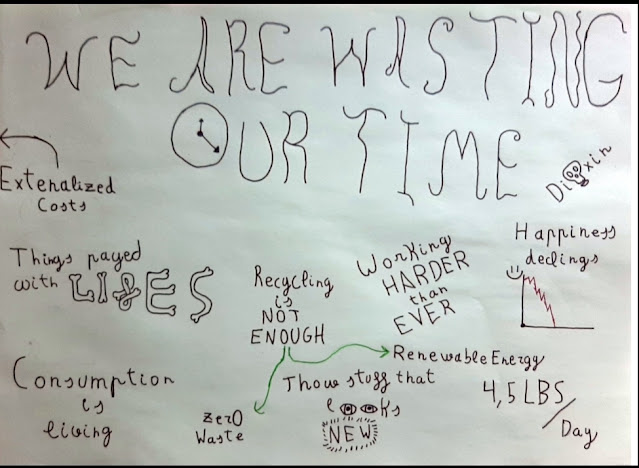 WE ARE WASTING
OUR TIME
Extenalized
Costs
Dioxin
Things payed
with LIFES
Recycling
is
NOT
ENOUGH
Working
HARDER
than
EVER
Happiness
declings
Consumption
is
living
zerO
Waste
Renewable Energy
Thow stugg that
looks
NEW
4,5 LBS/
Day